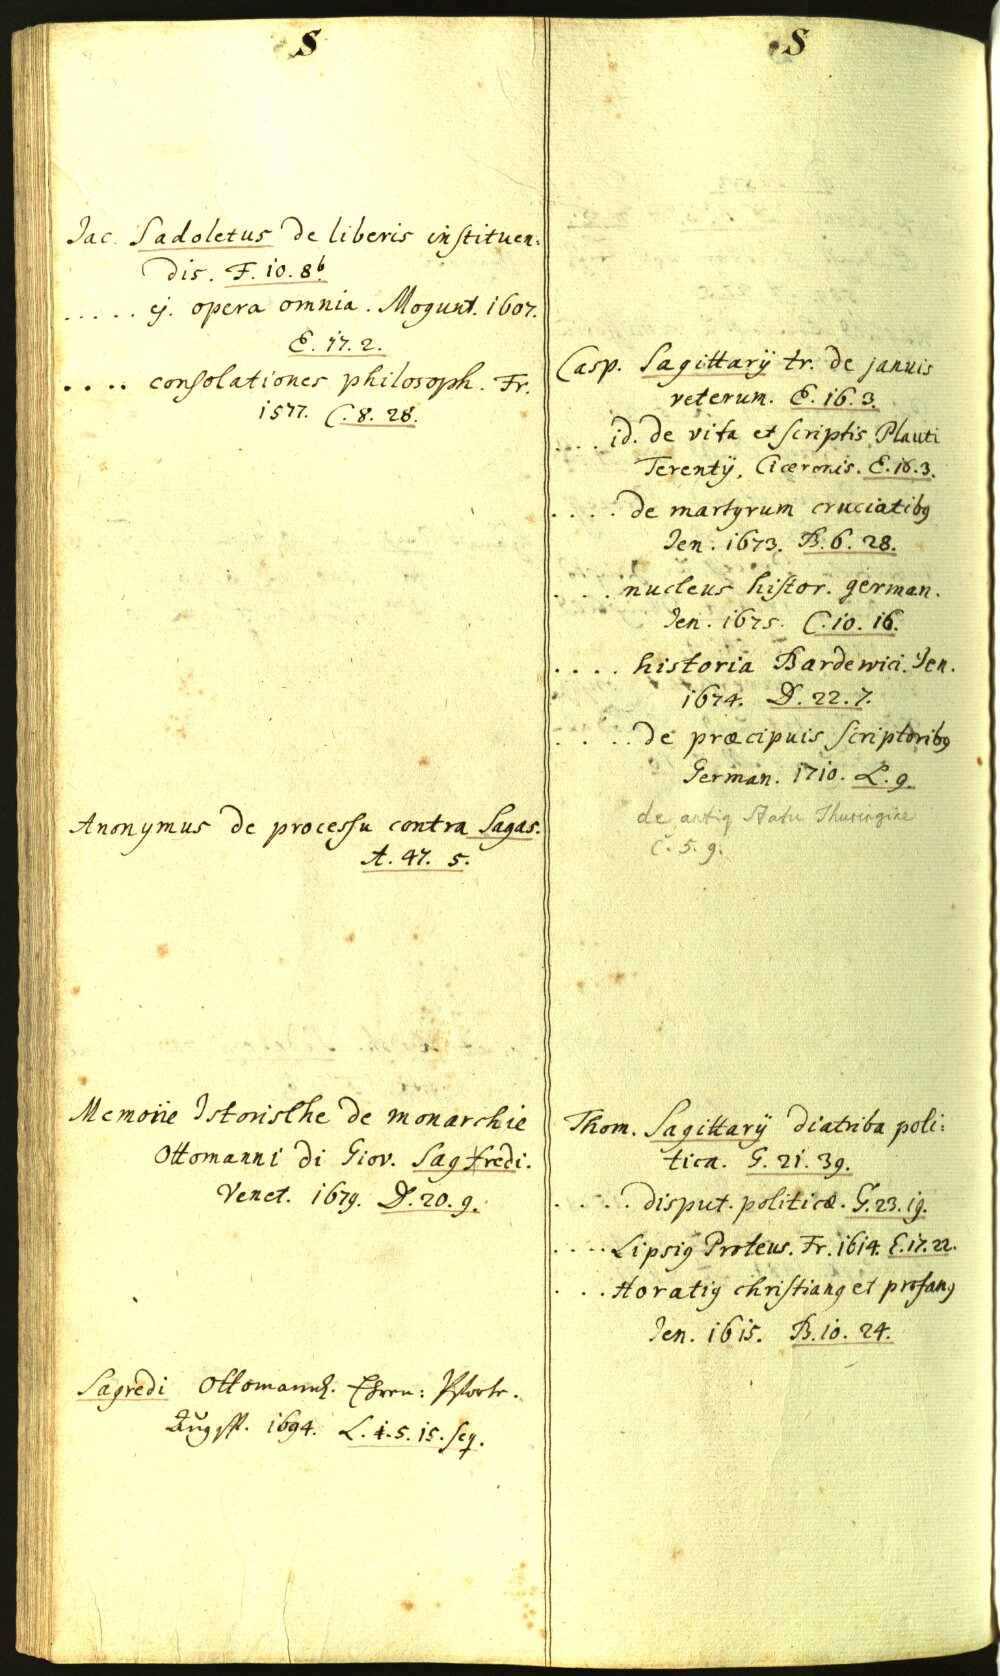 S
Jac. Sadoletus de liberis instituen:
dis. F. 10. 8b
..... ej. opera omnia. Mogunt. 1607.
E. 17. 2.
.... consolationes philosoph. Fr.
1577. C. 8. 28.
Anonymus de processu contra Sagas.
A. 47. 5.
Memorie Istorische de monarchie
Ottomanni di Giov. Sagredi.
Venet. 1679. D. 20. 9.
Sagredi Ottomannis. Ehren: Pforte.
Augsp. 1694. L. 4. 5. 15. seq.
S
Casp. Sagittarij tr. de januis
veterum. E. 16. 3.
.... id. de vita et scriptis Plauti
Terentij, Ciceronis. E. 16. 3.
.... de martyrum cruciatibq
Jen. 1673. B. 6. 28.
.... nucleus histor. german.
Jen. 1675. C. 10. 16.
.... historia Bardewici. Jen.
1674. D. 22. 7.
.... de præcipuis scriptoribq
German. 1710. L. 9.
de antiq Statu Thuringiae
C. 5. 9.
Thom. Sagittarij diatriba poli:
tica. G. 21. 39.
.... disput. politicæ. G. 23. 19.
.... Lipsiq Proteus. Fr. 1614. E. 17. 22.
... Horatiq christianq et profanq
Jen. 1615. B. 10. 24.